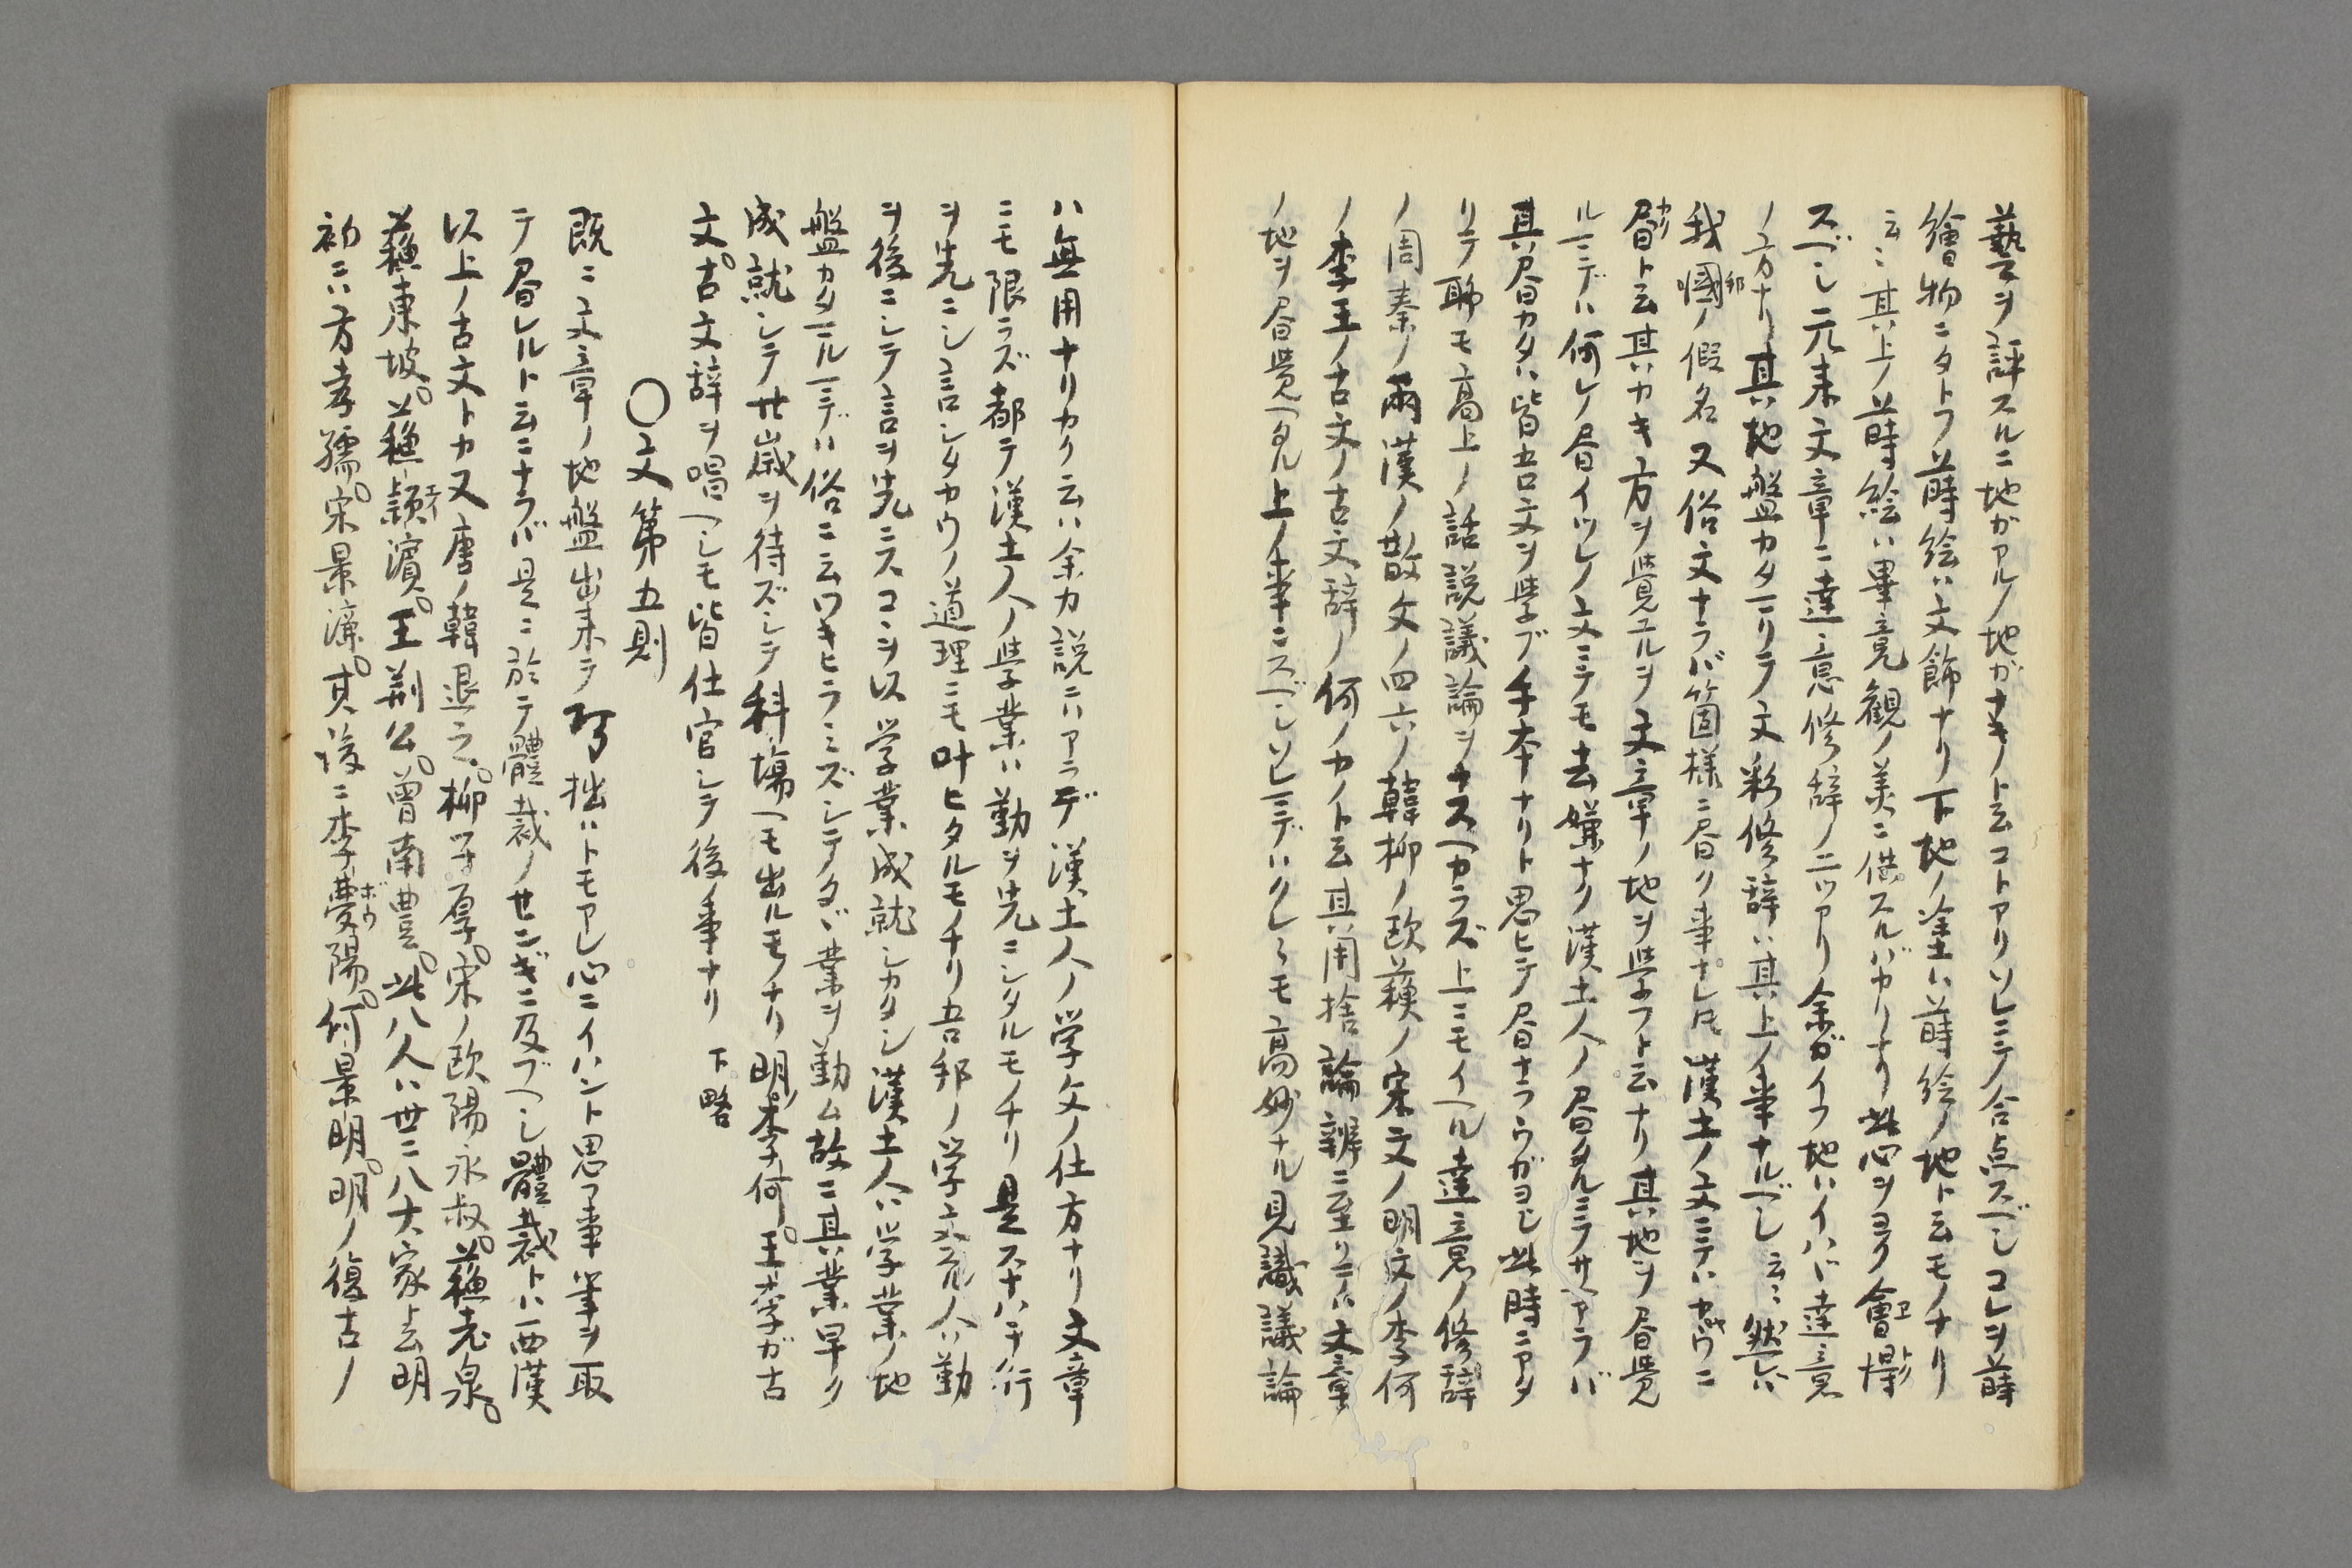 藝ヲ評スルニ地ガアルノ地ガナキノト云コトアリソレニテ合点スベシコレヲ蒔
繪物ニタトフ蒔絵ハ文飾ナリ下地ノ塗ハ蒔絵ノ地ト云モノナリ
云〻其上ノ蒔絵ハ畢竟観ノ美ニ供スルバカリナリ此心ヲヨク會得
スベシ元来文章ニ達意修辞ノ二ツアリ余ガイフ地ハイハバ達意
ノ方ナリ其地盤カタマリテ文彩修辞ハ其上ノ事ナルベシ云〻然レバ
我國ノ假名又俗文ナラバ箇様ニ昼ク事ナレ𪜈漢土ノ文ニテハカヤウニ
昼ト云其カキ方ヲ覚エルヲ文章ノ地ヲ学フト云ナリ其地ヲ昼覚
ルマデハ何レノ昼イツレノ文ニテモ去嫌ナク漢土人ノ昼タルミテサヘアラバ
其昼カタハ皆吾文ヲ学ブ手本ナリト思ヒテ昼ナラウガヨシ此時ニアタ
リテ聊モ高上ノ話説議論ヲナスヘカラズ上ニモイヘル達意ノ修辞
ノ周秦ノ兩漢ノ散文ノ四六ノ韓柳ノ欧蘇ノ宋文ノ明文ノ李何
ノ李王ノ古文ノ古文辞ノ何ノカノト云其用捨論辨ニ至リテハ文章
ノ地ヲ昼覚ヘタル上ノ事ニスベシソレマデハクレ〻モ高妙ナル見識議論
ハ無用ナリカク云ハ余カ説ニハアラデ漢土人ノ学文ノ仕方ナリ文章
ニモ限ラズ都テ漢土人ノ学業ハ勤ヲ先ニシタルモノナリ是スナハチ行
ヲ先ニシ言シタカウノ道理ニモ叶ヒタルモノナリ吾邦ノ学文スル人ハ勤
ヲ後ニシテ言ヲ先ニスコヽヲ以学業成就シカタシ漢土人ハ学業ノ地
盤カタマルマデハ俗ニ云ワキヒラミズシテタヾ業ヲ勤ム故ニ其業早ク
成就シテ廿歳ヲ待ズシテ科場ヘモ出ルモノナリ明ノ李何。王李ガ古
文。古文辞ヲ唱ヘシモ皆仕官シテ後ノ事ナリ 下略
〇文第五則
既ニ文章ノ地盤出来テ巧拙ハトモアレ心ニイハント思フ事筆ヲ取
テ昼レルト云ニナラバ是ニ於テ體裁ノセンギニ及ブヘシ體裁トハ西漢
以上ノ古文トカ又唐ノ韓退之。柳子厚。宋ノ欧陽永叔。蘓老泉。
蘓東坡。蘓頴濱。王荊公。曾南豊。此八人ハ世ニ八大家ト云明
初ニハ方孝孺。宋景濂。其後ニ李夢陽。何景明。明ノ復古ノ